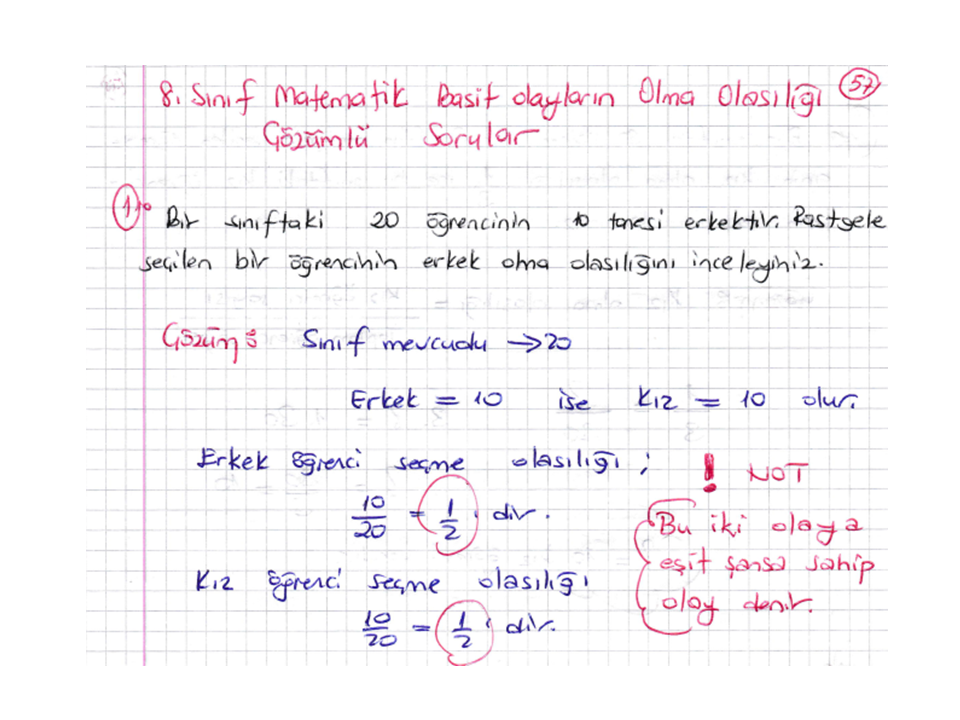 8. Sınıf Matematik Basit olayların Olma Olasılığı 57
Çözümlü Sorular
1. Bir sınıftaki 20 öğrencinin 10 tanesi erkektir. Rastgele
seçilen bir öğrencinin erkek olma olasılığını inceleyiniz.
Çözüm: Sınıf mevcudu → 20
Erkek = 10 ise Kız = 10 olur.
Erkek öğrenci seçme olasılığı;
10/20 = 1/2 dir.
Kız öğrenci seçme olasılığı
10/20 = 1/2 dir.
! NOT
Bu iki olaya
eşit şansa sahip
olay denir.